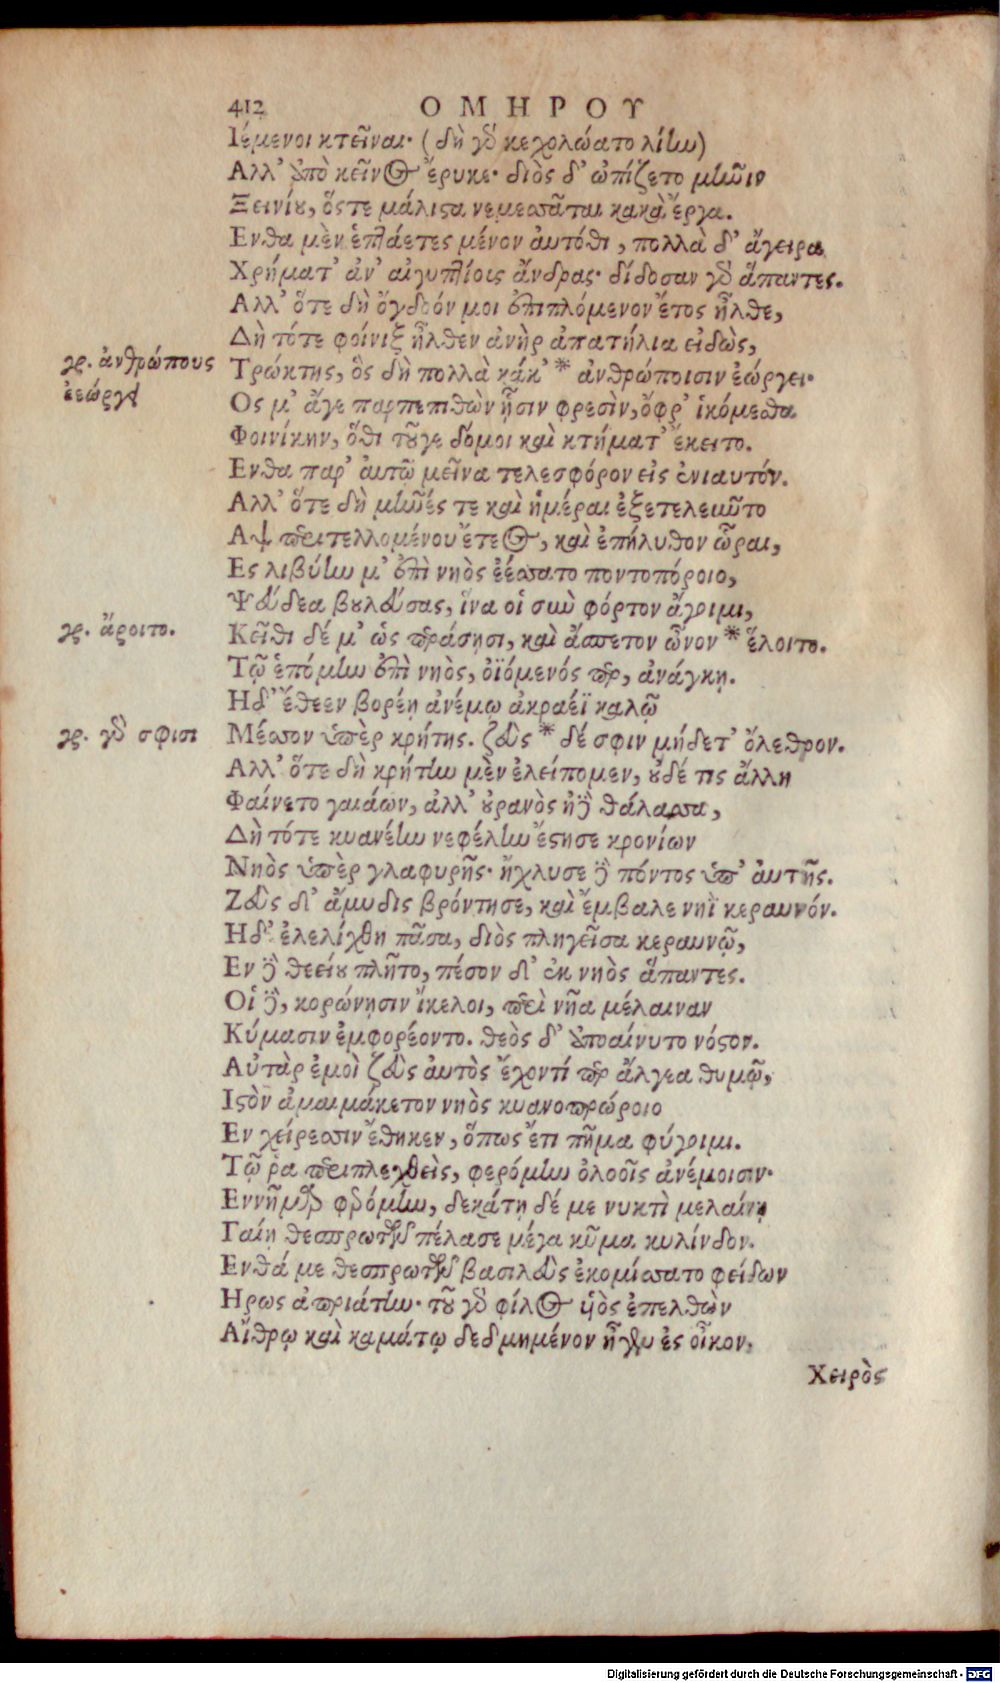 412 ΟΜΗΡΟΥ
Ιέμενοι κτεῖναι· (δὴ γὰρ κεχολώατο λίην)
Αλλ' ἀπὸ κεῖνος ἔρυκε· διὸς δ' ὠπίζετο μῆνιν
Ξεινίου, ὅςτε μάλιστα νεμεσσᾶται κακὰ ἔργα.
Ενθα μὲν ἑπτάετες μένον αὐτόθι, πολλὰ δ' ἄγειρα
Χρήματ' ἀν' αἰγυπτίοις ἄνδρας· δίδοσαν γὰρ ἅπαντες.
Αλλ' ὅτε δὴ ὄγδοόν μοι ἐπιπλόμενον ἔτος ἦλθε,
Δὴ τότε φοίνιξ ἦλθεν ἀνὴρ ἀπατήλια εἰδὼς,
γρ. ἀνθρώπους
ἐεώργει
Τρώκτης, ὃς δὴ πολλὰ κάκ' * ἀνθρώποισιν ἐώργει·
Ος μ' ἄγε παρπεπιθὼν ᾗσιν φρεσὶν, ὄφρ' ἱκόμεσθα
Φοινίκην, ὅθι τοῦγε δόμοι καὶ κτήματ' ἔκειτο.
Ενθα παρ' αὐτῷ μεῖνα τελεσφόρον εἰς ἐνιαυτόν.
Αλλ' ὅτε δὴ μῆνές τε καὶ ἡμέραι ἐξετελεῦντο
Αψ περιτελλομένου ἔτεος, καὶ ἐπήλυθον ὧραι,
Ες λιβύην μ' ἐπὶ νηὸς ἐέσσατο ποντοπόροιο,
Ψεύδεα βουλεύσας, ἵνα οἱ σὺν φόρτον ἄγοιμι,
γρ. ἄροιτο.
Κεῖθι δέ μ' ὡς περάσῃσι, καὶ ἄσπετον ὦνον * ἕλοιτο.
Τῷ ἑπόμην ἐπὶ νηὸς, ὀϊόμενός περ, ἀνάγκῃ.
Ηδ' ἔθεεν βορέῃ ἀνέμῳ ἀκραέϊ καλῷ
γρ. γὰρ σφισι
Μέσσον ὑπὲρ κρήτης. ζεὺς * δέ σφιν μήδετ' ὄλεθρον.
Αλλ' ὅτε δὴ κρήτην μὲν ἐλείπομεν, οὐδέ τις ἄλλη
Φαίνετο γαιάων, ἀλλ' οὐρανὸς ἠδὲ θάλασσα,
Δὴ τότε κυανέην νεφέλην ἔστησε κρονίων
Νηὸς ὑπὲρ γλαφυρῆς· ἤχλυσε δὲ πόντος ὑπ' αὐτῆς.
Ζεὺς δ' ἄμυδις βρόντησε, καὶ ἔμβαλε νηῒ κεραυνόν.
Ηδ' ἐλελίχθη πᾶσα, διὸς πληγεῖσα κεραυνῷ,
Εν δὲ θεείου πλῆτο, πέσον δ' ἐκ νηὸς ἅπαντες.
Οἱ δὲ, κορώνῃσιν ἴκελοι, περὶ νῆα μέλαιναν
Κύμασιν ἐμφορέοντο. θεὸς δ' ἀποαίνυτο νόστον.
Αὐτὰρ ἐμοὶ ζεὺς αὐτὸς ἔχοντί περ ἄλγεα θυμῷ,
Ιστὸν ἀμαιμάκετον νηὸς κυανοπρώροιο
Εν χείρεσσιν ἔθηκεν, ὅπως ἔτι πῆμα φύγοιμι.
Τῷ ῥα περιπλεχθεὶς, φερόμην ὀλοοῖς ἀνέμοισιν·
Εννῆμαρ φερόμην, δεκάτῃ δέ με νυκτὶ μελαίνῃ
Γαίῃ θεσπρωτῶν πέλασε μέγα κῦμα κυλίνδον.
Ενθά με θεσπρωτῶν βασιλεὺς ἐκομίσσατο φείδων
Ηρως ἀπριάτην· τοῦ γὰρ φίλος υἱὸς ἐπελθὼν
Αἴθρῳ καὶ καμάτῳ δεδμημένον ἦγεν ἐς οἶκον,
Χειρὸς
Digitalisierung gefördert durch die Deutsche Forschungsgemeinschaft - DFG